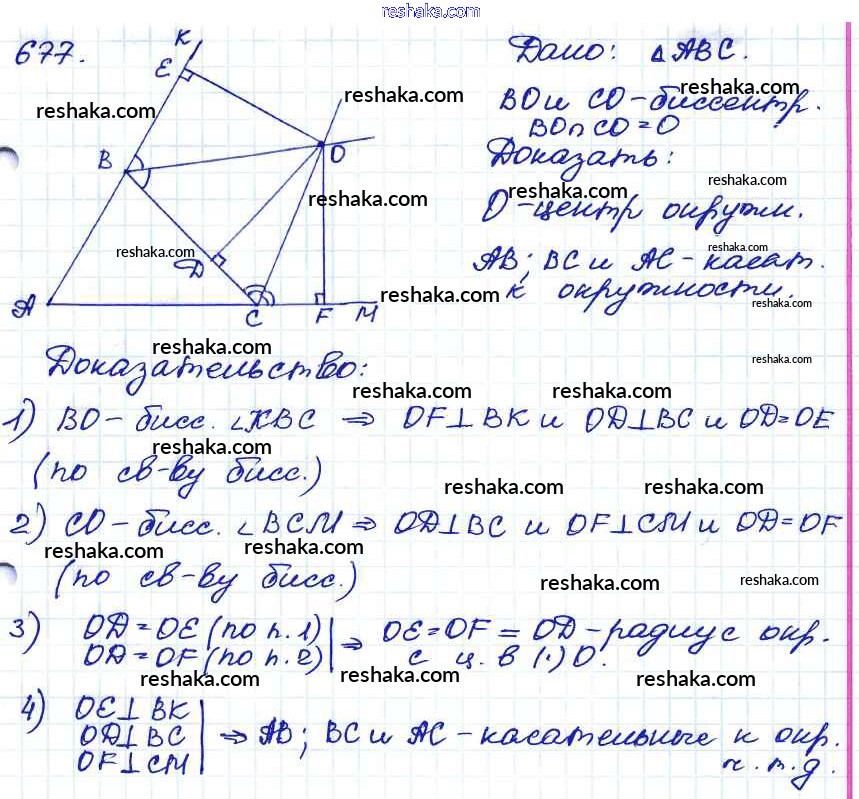 reshaka.com
677.
K
E
reshaka.com
reshaka.com
B
O
reshaka.com
reshaka.com
D
A
C
F
M
reshaka.com
Дано: △ABC.
reshaka.com
BO и CO - биссектр.
BO∩CO=O
Доказать:
reshaka.com
reshaka.com
O-центр окружн.
reshaka.com
AB; BC и AC - касат.
к окружности.
reshaka.com
reshaka.com
Доказательство:
reshaka.com
reshaka.com
reshaka.com
1) BO - бисс. ∠KBC ⇒ OF⊥BK и OD⊥BC и OD=OE
reshaka.com
(по св-ву бисс.)
reshaka.com
reshaka.com
2) CO - бисс. ∠BCM ⇒ OD⊥BC и OF⊥CM и OD=OF
reshaka.com
reshaka.com
(по св-ву бисс.)
reshaka.com
reshaka.com
3) OD=OE (по п.1) | ⇒ OE=OF=OD - радиус окр.
OD=OF (по п.2) | с ц. в (·) O.
reshaka.com
reshaka.com
reshaka.com
4) OE⊥BK
OD⊥BC | ⇒ AB; BC и AC - касательные к окр.
OF⊥CM | ч.т.д.